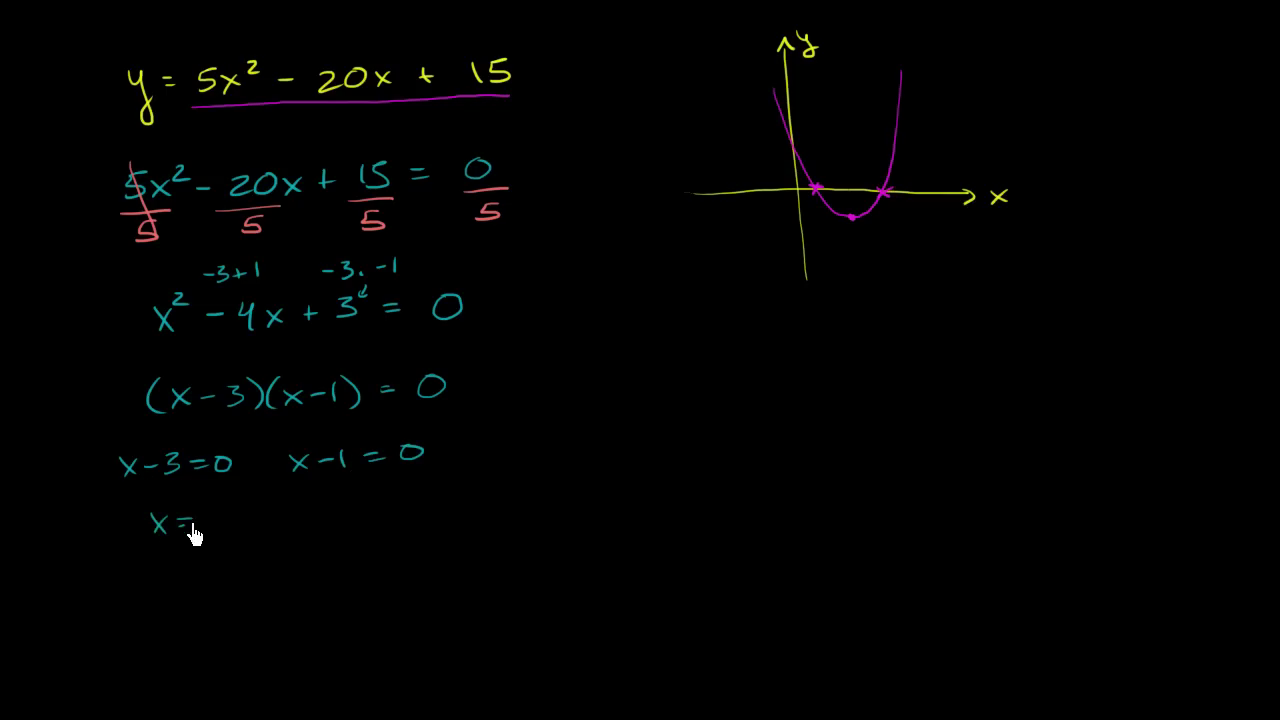 y = 5x² - 20x + 15
5x² - 20x + 15 = 0
5 5 5 5
-3+1 -3·-1
x² - 4x + 3 = 0
(x-3)(x-1) = 0
x-3=0 x-1=0
x=
y
x